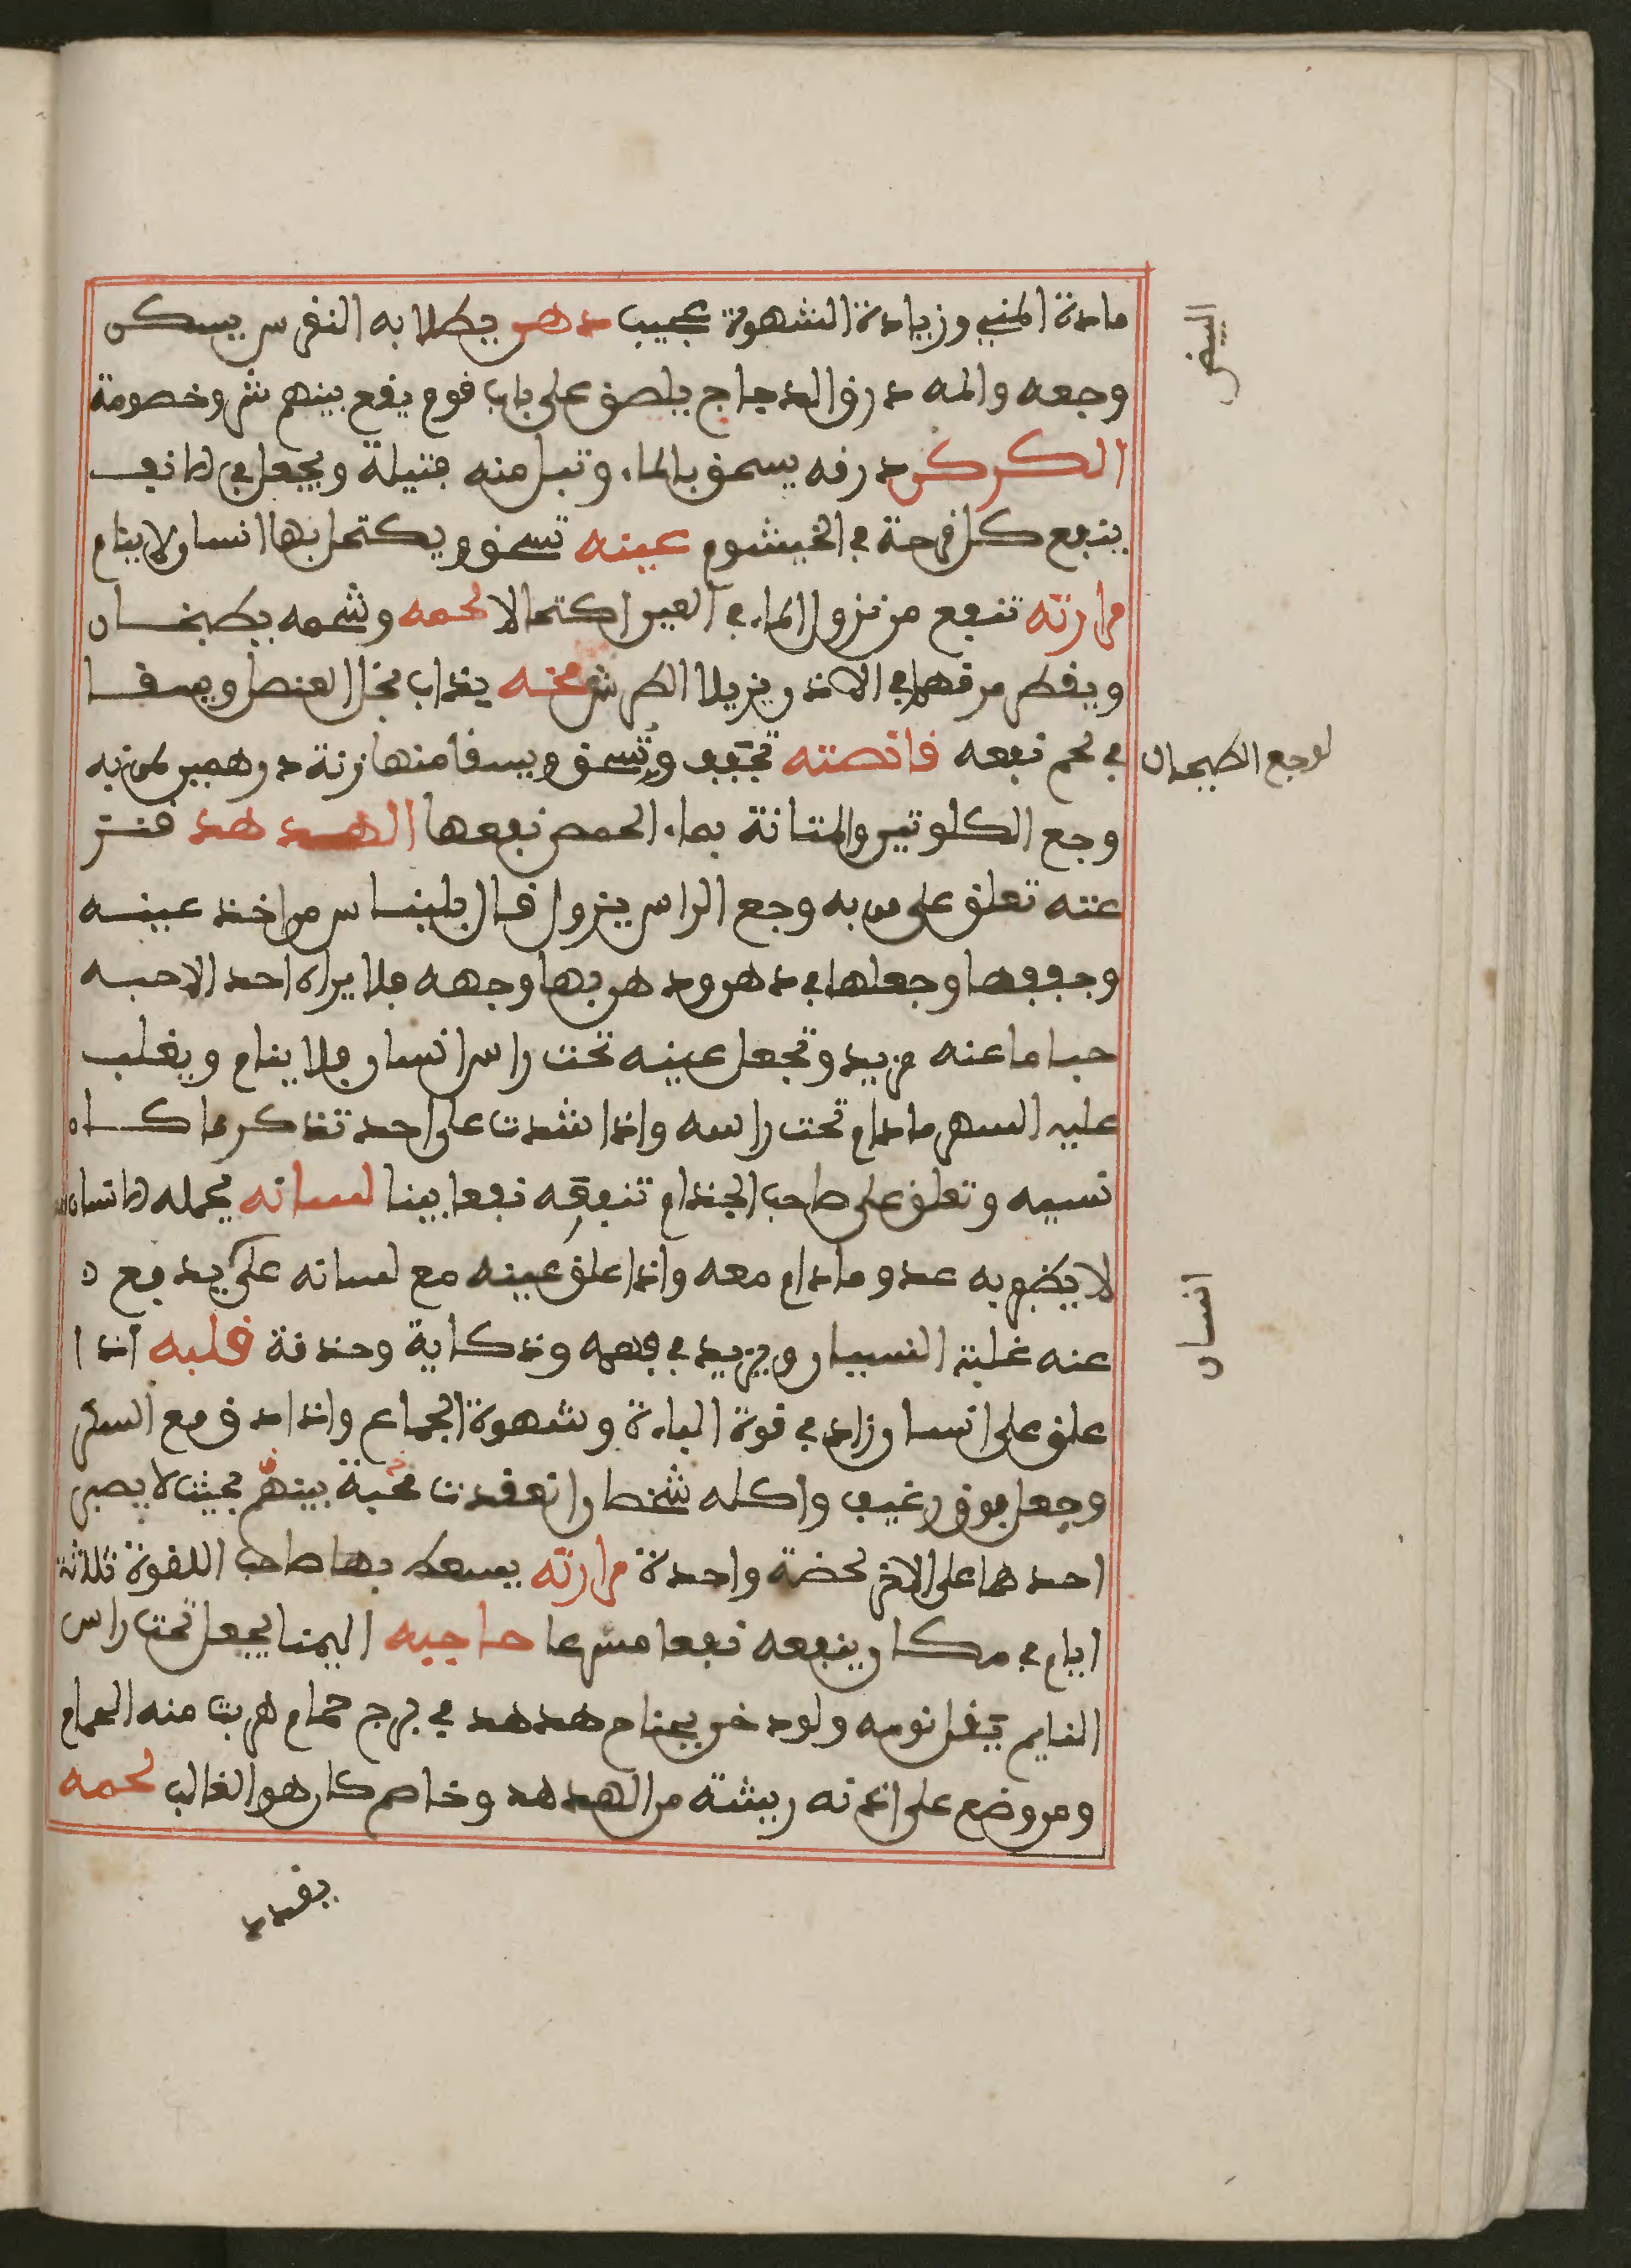 مادة المني وزيادة الشهوة عجيب دهن يطلا به النقرس يسكن
وجعه والمه درق الدجاج يلصق على باب قوم يقع بينهم شر وخصومة
الكركي درقه يسحق بالماء وتبل منه فتيلة ويجعل في الانف
ينفع كل قرحة في الخيشوم عينه تسحق ويكتحل بها انسان لا ينام
مرارته تنفع من نزول الماء في العين اكتحالا لحمه وشحمه يطبخان
ويقطر مرقهما في الاذن يزيل الطرش مخه يذاب بخل العنصل ويسقا
في لحم نفعه قانصته تجفف وتسحق ويسقا منها زنة درهمين لمن به
وجع الكلوتين والمثانة بماء الحمص نفعها الهدهد قنتز
عته تعلق على من به وجع الراس يزول قال بليناس من اخذ عينه
وجففها وجعلها في دهن ودهن بها وجهه فلا يراه احد الا حبه
حبا ما عنه مزيد وتجعل عينه تحت راس انسان فلا ينام ويغلب
عليه السهر مادام تحت راسه واذا شدت على احد تذكر ما كان
نسيه وتعلق على صاحب الجذام تنفعه نفعا بينا لسانه يحمله الانسان
لا يظفر به عدو مادام معه واذا علق عينه مع لسانه على يد فع
عنه غلبة النسيان ويزيد في فهمه وذكاية وحذقة قلبه اذا
علق على انسان زاد في قوة الباءة وشهوة الجماع واذا دق مع السكر
وجعل فوق رغيف واكله شخصان انعقدت محبة بينهم بحيث لا يصبر
احدهما على الاخر لحضة واحدة مرارته يسعط بها صاحب اللقوة ثلاثة
ايام في مكان ينفعه نفعا مسرعا حاجبه اليمنا يجعل تحت راس
النايم يثقل نومه ولو دخن بجناح هدهد في برج حمام هربت منه الحمام
ومن وضع على اذنه ريشة من الهدهد وخاصم كان هو الغالب لحمه
يقدد
البيض
لوجع الطيحان
انسان